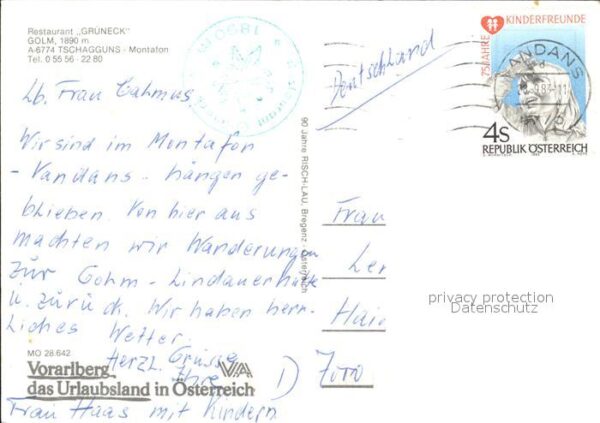 Restaurant „GRÜNECK"
GOLM, 1890 m.
A-6774 TSCHAGGUNS - Montafon
Tel. 0 55 56 - 22 80
Lb. Frau Cahmus,
Wir sind im Montafon
- Vandans - hängen ge-
blieben. Von hier aus
machten wir Wanderungen
zur Gohm - Lindauerhütte
u. zurück. Wir haben herr-
liches Wetter.
Herzl. Grüsse
Ihre
Frau Haas mit Kindern
MO 28.642
Vorarlberg
das Urlaubsland in Österreich
VA
90 Jahre RISCH-LAU, Bregenz, Österreich
Deutschland
75 JAHRE KINDERFREUNDE
4S
REPUBLIK ÖSTERREICH
VANDANS
Frau
Ler
Hai
D
privacy protection
Datenschutz